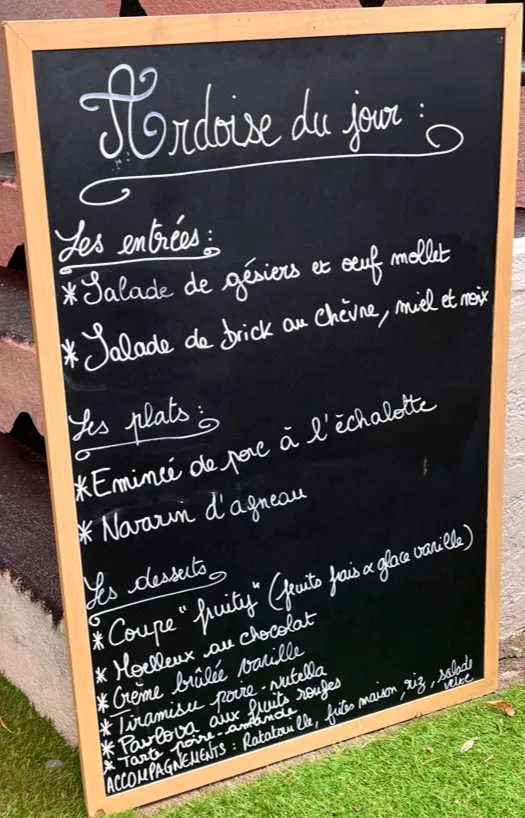 Ardoise du jour :
Les entrées :
* Salade de gésiers et oeuf mollet
* Salade de brick au chèvre, miel et noix
Les plats :
* Emincé de porc à l'échalotte
* Navarin d'agneau
Les desserts
* Coupe "fruity" (fruits frais & glace vanille)
* Moelleux au chocolat
* Crème brûlée vanille
* Tiramisu poire-nutella
* Pavlova aux fruits rouges
* Tarte poire-amande
ACCOMPAGNEMENTS : Ratatouille, frites maison, riz, salade
verte